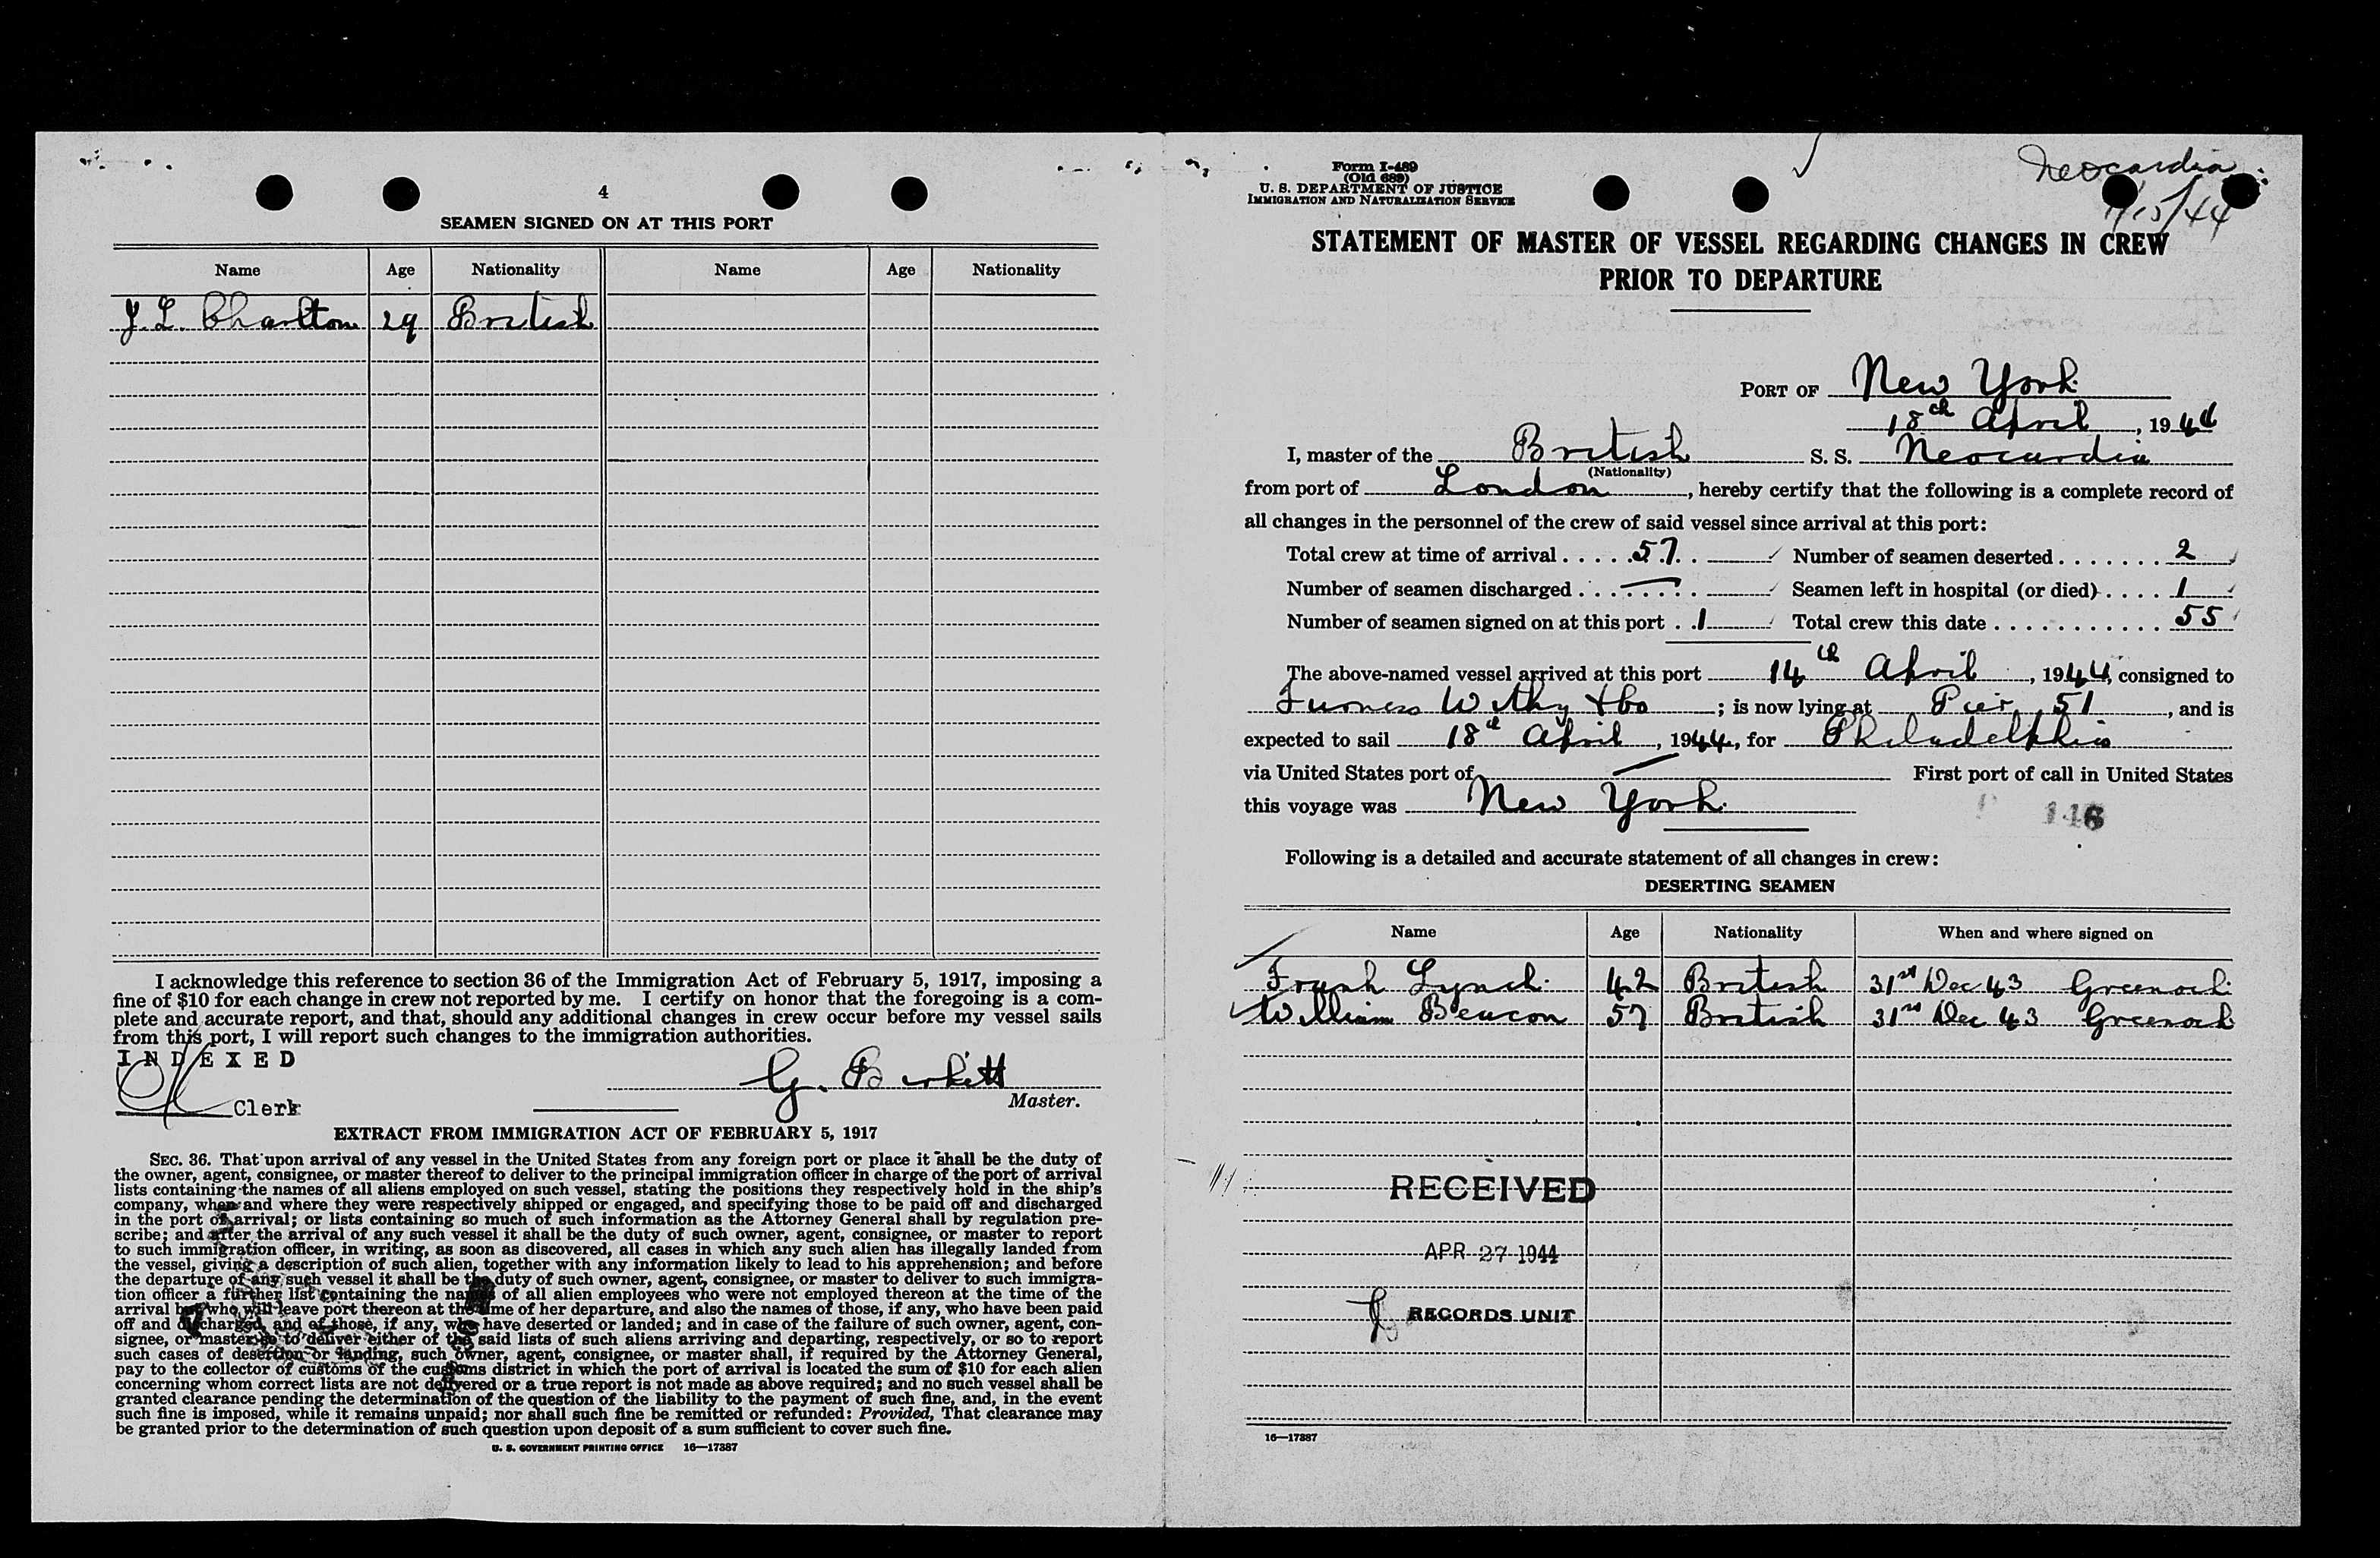 4
SEAMEN SIGNED ON AT THIS PORT
Name Age Nationality Name Age Nationality
J. L. Charlton 29 British
I acknowledge this reference to section 36 of the Immigration Act of February 5, 1917, imposing a
fine of $10 for each change in crew not reported by me. I certify on honor that the foregoing is a com-
plete and accurate report, and that, should any additional changes in crew occur before my vessel sails
from this port, I will report such changes to the immigration authorities.
INDEXED
Clerk
G. Birkett
Master.
EXTRACT FROM IMMIGRATION ACT OF FEBRUARY 5, 1917
SEC. 36. That upon arrival of any vessel in the United States from any foreign port or place it shall be the duty of
the owner, agent, consignee, or master thereof to deliver to the principal immigration officer in charge of the port of arrival
lists containing the names of all aliens employed on such vessel, stating the positions they respectively hold in the ship's
company, when and where they were respectively shipped or engaged, and specifying those to be paid off and discharged
in the port of arrival; or lists containing so much of such information as the Attorney General shall by regulation pre-
scribe; and after the arrival of any such vessel it shall be the duty of such owner, agent, consignee, or master to report
to such immigration officer, in writing, as soon as discovered, all cases in which any such alien has illegally landed from
the vessel, giving a description of such alien, together with any information likely to lead to his apprehension; and before
the departure of any such vessel it shall be the duty of such owner, agent, consignee, or master to deliver to such immigra-
tion officer a further list containing the names of all alien employees who were not employed thereon at the time of the
arrival but who will leave port thereon at the time of her departure, and also the names of those, if any, who have been paid
off and discharged, and of those, if any, who have deserted or landed; and in case of the failure of such owner, agent, con-
signee, or master so to deliver either of the said lists of such aliens arriving and departing, respectively, or so to report
such cases of desertion or landing, such owner, agent, consignee, or master shall, if required by the Attorney General,
pay to the collector of customs of the customs district in which the port of arrival is located the sum of $10 for each alien
concerning whom correct lists are not delivered or a true report is not made as above required; and no such vessel shall be
granted clearance pending the determination of the question of the liability to the payment of such fine, and, in the event
such fine is imposed, while it remains unpaid; nor shall such fine be remitted or refunded: Provided, That clearance may
be granted prior to the determination of such question upon deposit of a sum sufficient to cover such fine.
U. S. GOVERNMENT PRINTING OFFICE 16—17387
Form I-489
(Old 689)
U. S. DEPARTMENT OF JUSTICE
IMMIGRATION AND NATURALIZATION SERVICE
Neocardia
/15/44
STATEMENT OF MASTER OF VESSEL REGARDING CHANGES IN CREW
PRIOR TO DEPARTURE
PORT OF New York
18th April, 1944
I, master of the British S. S. Neocardia
(Nationality)
from port of London, hereby certify that the following is a complete record of
all changes in the personnel of the crew of said vessel since arrival at this port:
Total crew at time of arrival . . . . . 57 Number of seamen deserted . . . . . . . 2
Number of seamen discharged . . . . . . . — Seamen left in hospital (or died) . . . . 1
Number of seamen signed on at this port . . 1 Total crew this date . . . . . . . . . . . . 55
The above-named vessel arrived at this port 14th April, 1944, consigned to
Furness Withy & Co; is now lying at Pier 51, and is
expected to sail 18th April, 1944, for Philadelphia
via United States port of — First port of call in United States
this voyage was New York.
146
Following is a detailed and accurate statement of all changes in crew:
DESERTING SEAMEN
Name Age Nationality When and where signed on
Frank Lynch. 42 British 31st Dec 43 Greenock
William Beacon 57 British 31st Dec 43 Greenock
RECEIVED
APR 27 1944
RECORDS UNIT
16—17387